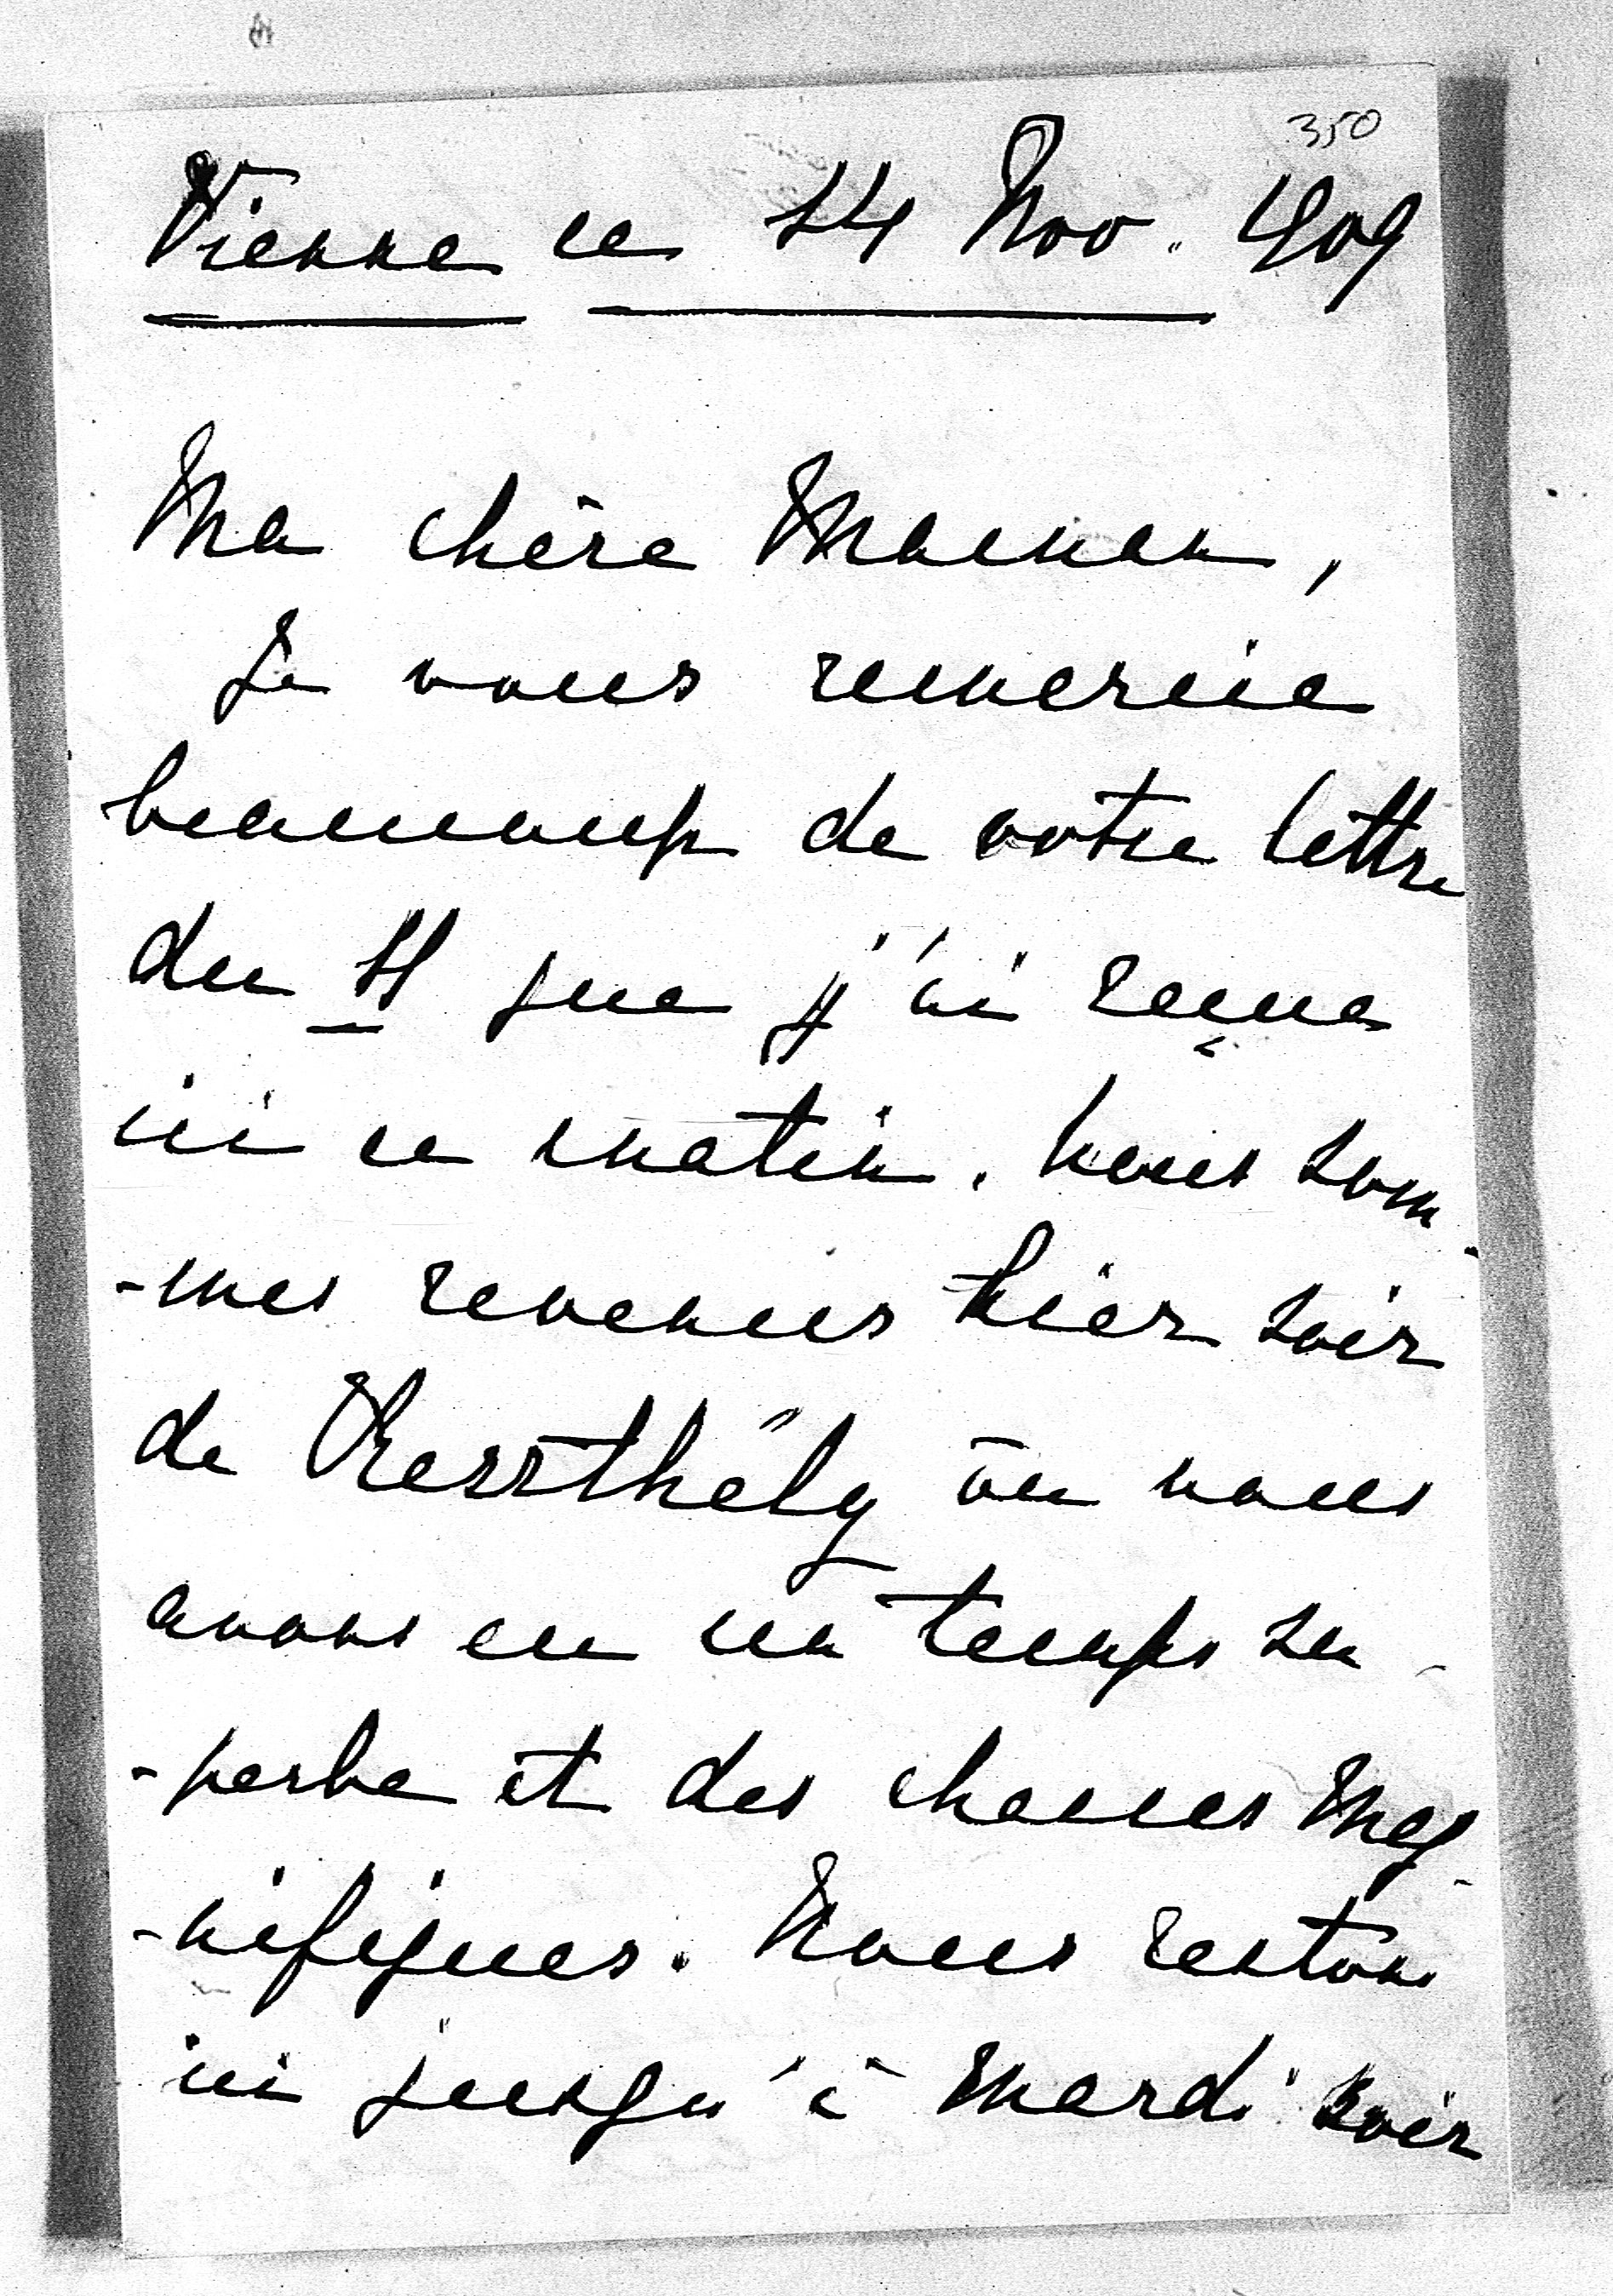 350
Vienne ce 14 Nov. 1909
Ma chère Maman,
Je vous remercie
beaucoup de votre lettre
du 11 que j'ai reçue
ici ce matin. Nous som-
-mes revenus hier soir
de Keszthély où nous
avons eu un temps su-
-perbe et des chasses mag-
-nifiques. Nous restons
ici jusqu'à mardi soir